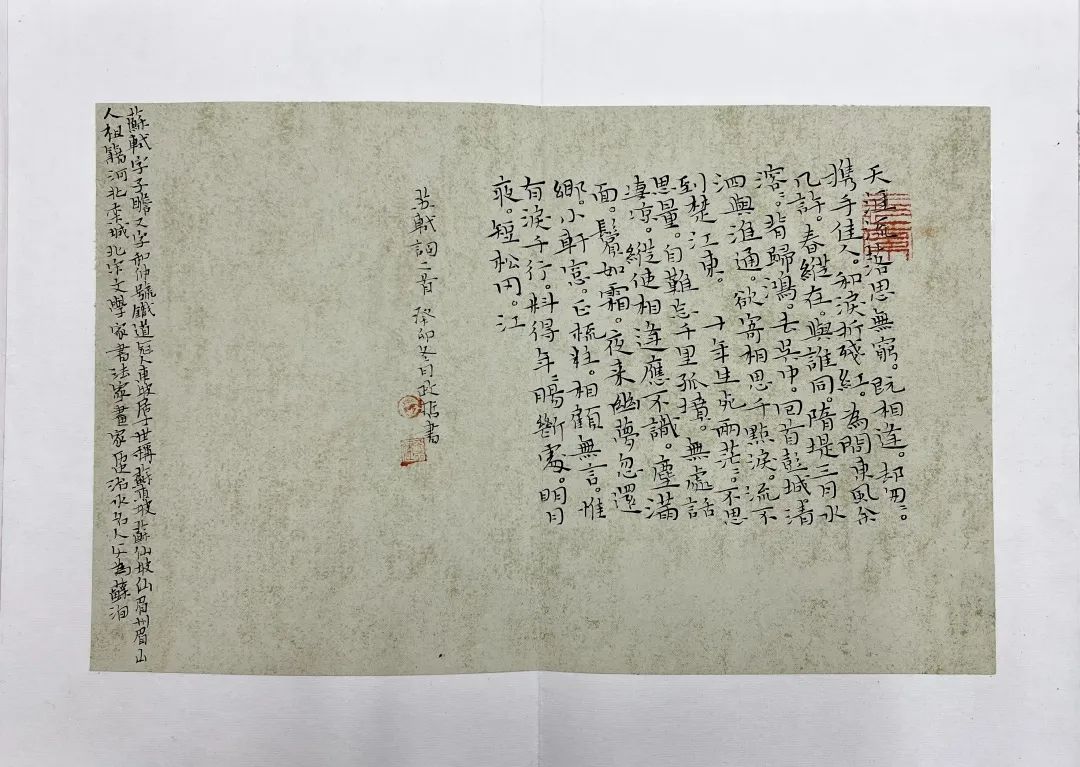 天涯流落思無窮。既相逢。却匆々。
攜手佳人。和淚折殘紅。為問東風余
几許。春縱在。與誰同。隋堤三月水
溶々。背歸鴻。去吳中。回首彭城。清
泗與淮通。欲寄相思千點淚。流不
到楚江東。 十年生死兩茫々。不思
思量。自難忘。千里孤墳。無處話
淒涼。縱使相逢應不識。塵滿
面。鬢如霜。夜来幽夢忽還
鄉。小軒窓。正梳妝。相顧無言。惟
有淚千行。料得年々腸斷處。明月
夜。短松冈。江
苏軾詞二首 癸卯冬月政書
蘇軾字子瞻又字和仲號鐵道冠人東坡居士世稱蘇東坡蘇仙坡仙眉州眉山
人祖籍河北栾城北宋文學家書法家畫家治水名人父為蘇洵